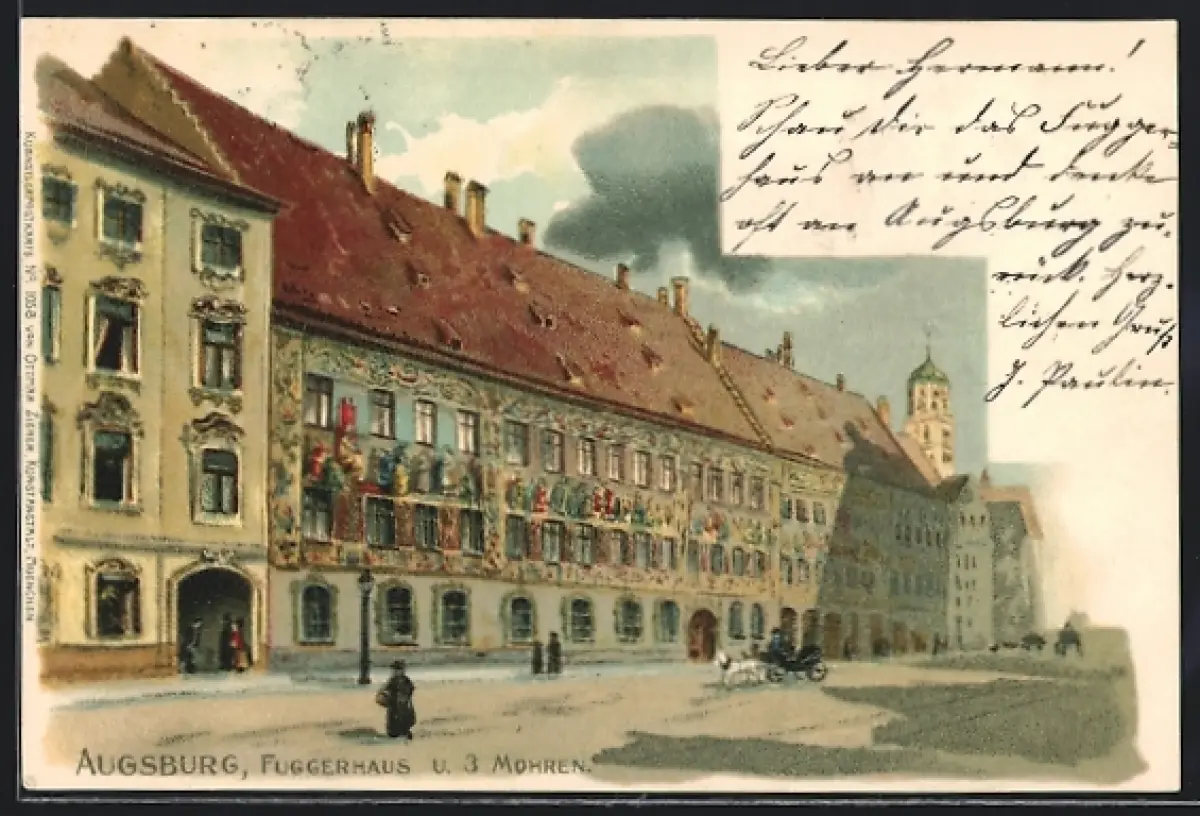 Lieber Hermann!
Schau dir das Fugger-
haus an und denke
oft an Augsburg zu-
rück. Herz-
lichen Gruß
J. Paulin.
KUENSTLERPOSTKARTE No. 1056 VON OTTMAR ZIEHER, KUNSTANSTALT, MUENCHEN
AUGSBURG, FUGGERHAUS U. 3 MOHREN.